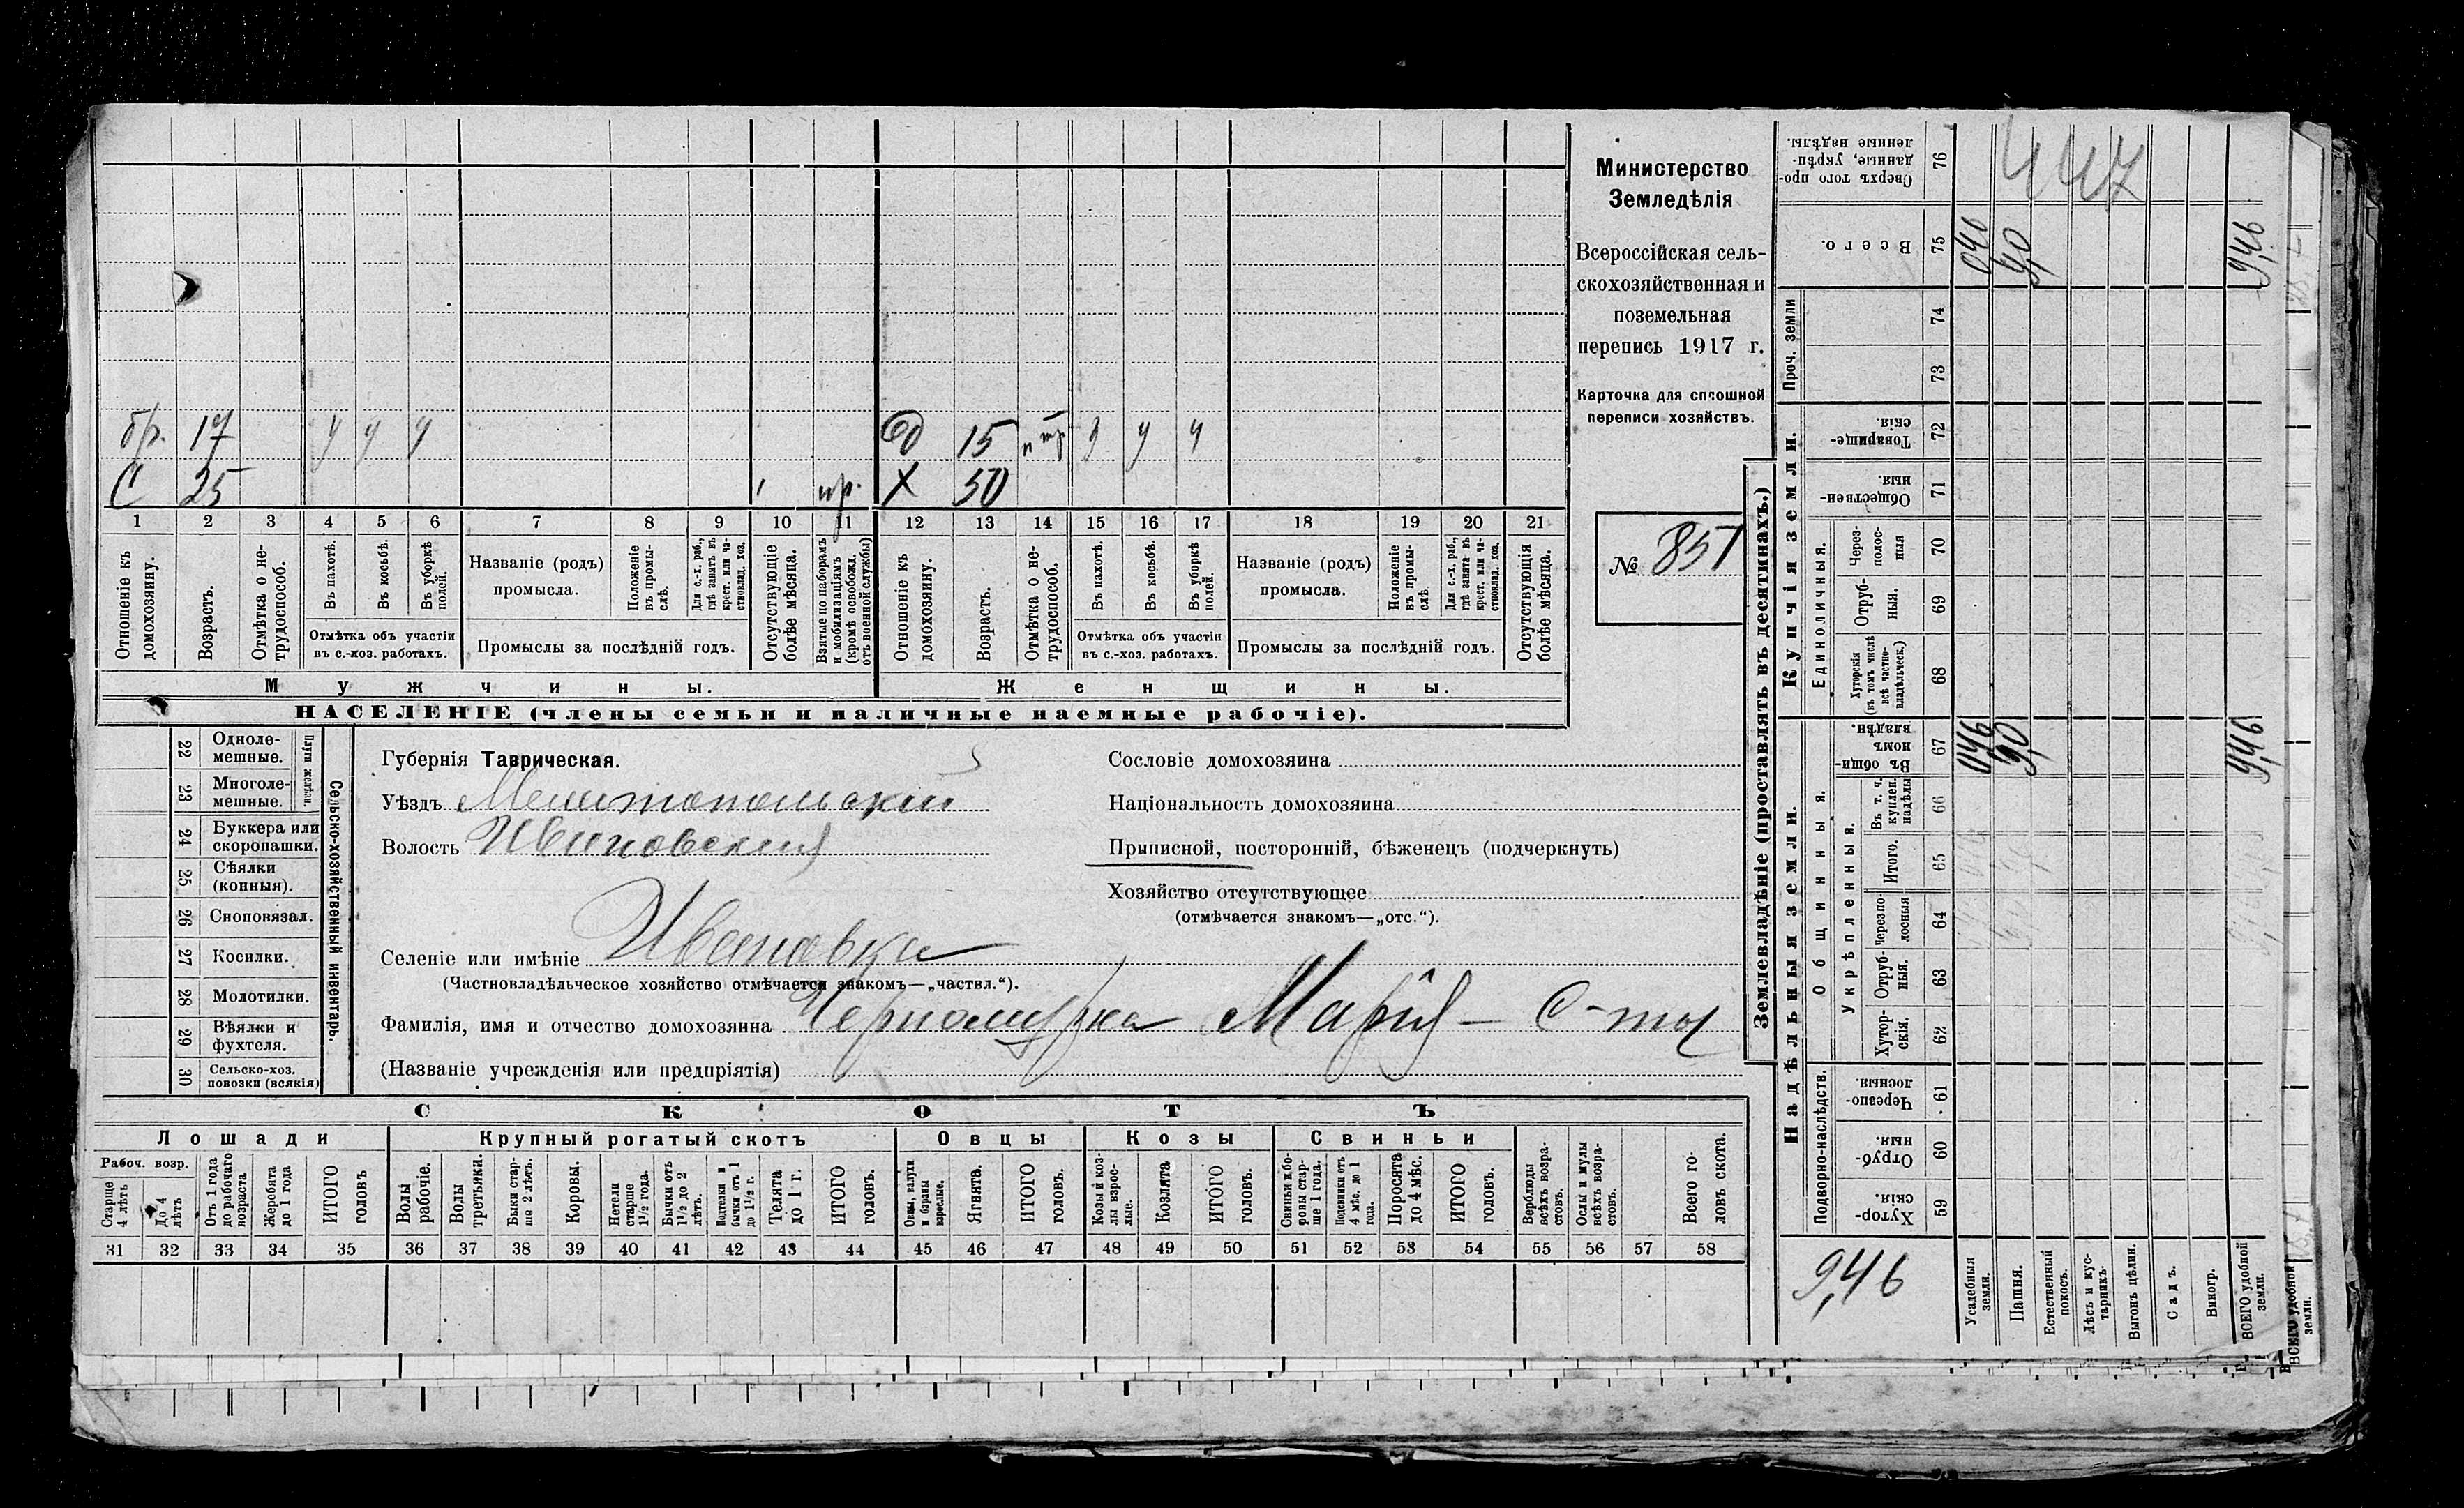 бр. 17 у у у Д 15 у у у
С 25 1 пр. Х 50
1 2 3 4 5 6 7 8 9 10 11 12 13 14 15 16 17 18 19 20 21
Отношеніе къ домохозяину.
Возрастъ.
Отмѣтка о нетрудоспособ.
Въ пахотѣ.
Въ косьбѣ.
Въ уборкѣ полей.
Отмѣтка объ участіи
въ с.-хоз. работахъ.
Названіе (родъ)
промысла.
Положеніе въ промыслѣ.
Для с.-х. раб., гдѣ занятъ въ крест. или частновлад. хоз.
Промыслы за послѣдній годъ.
Отсутствующіе болѣе мѣсяца.
Взятые по наборамъ и мобилизаціямъ (кромѣ освобожд. отъ военной службы)
Отношеніе къ домохозяину.
Возрастъ.
Отмѣтка о нетрудоспособ.
Въ пахотѣ.
Въ косьбѣ.
Въ уборкѣ полей.
Отмѣтка объ участіи
въ с.-хоз. работахъ.
Названіе (родъ)
промысла.
Положеніе въ промыслѣ.
Для с.-х. раб., гдѣ занята въ крест. или частновлад. хоз.
Промыслы за послѣдній годъ.
Отсутствующія болѣе мѣсяца.
Мужчины. Женщины.
НАСЕЛЕНІЕ (члены семьи и наличные наемные рабочіе).
Министерство
Земледѣлія
Всероссійская сель-
скохозяйственная и
поземельная
перепись 1917 г.
Карточка для сплошной
переписи хозяйствъ.
№ 857
Сельско-хозяйственный инвентарь.
Плуги желѣзн.
22 Одноле-
мешные.
23 Многоле-
мешные.
24 Буккера или
скоропашки.
25 Сѣялки
(конныя).
26 Сноповязал.
27 Косилки.
28 Молотилки.
29 Вѣялки и
фухтеля.
30 Сельско-хоз.
повозки (всякія)
Губернія Таврическая.
Уѣздъ Мелитопольскій
Волость Ивановская
Селеніе или имѣніе Ивановка
(Частновладѣльческое хозяйство отмѣчается знакомъ—„частвл.“).
Фамилія, имя и отчество домохозяина Марія
(Названіе учрежденія или предпріятія)
Сословіе домохозяина
Національность домохозяина
Приписной, посторонній, бѣженецъ (подчеркнуть)
Хозяйство отсутствующее
(отмѣчается знакомъ—„отс.“).
СКОТЪ
Лошади Крупный рогатый скотъ Овцы Козы Свиньи
Рабоч. возр.
Старше 4 лѣтъ
До 4 лѣтъ
Отъ 1 года до рабочаго возраста
Жеребята до 1 года
ИТОГО головъ
Волы рабочіе.
Волы третьяки.
Быки старше 2 лѣтъ.
Коровы.
Нетели старше 1½ года.
Бычки отъ 1½ до 2 лѣтъ.
Подтелки и бычки отъ 1 до 1½ г.
Телята до 1 г.
ИТОГО головъ.
Овцы, валухи и бараны взрослые.
Ягнята.
ИТОГО головъ.
Козы и козлы взрослые.
Козлята
ИТОГО головъ.
Свиньи и боровы старше 1 года.
Подсвинки отъ 4 мѣс. до 1 года.
Поросята до 4 мѣс.
ИТОГО головъ.
Верблюды всѣхъ возрастовъ.
Ослы и мулы всѣхъ возрастовъ.
Всего головъ скота.
31 32 33 34 35 36 37 38 39 40 41 42 43 44 45 46 47 48 49 50 51 52 53 54 55 56 57 58
Землевладѣніе (проставлять въ десятинахъ.)
447
Сверхъ того проданные, укрѣпленные надѣлы. 76
Всего. 75 046 9,0 9,46
Проч. земли 74
73
Купчія земли.
Товарищескія 72
Общественныя. 71
Единоличныя.
Черезполосныя 70
Отрубныя. 69
Хуторскія (въ томъ числѣ всѣ частновладѣльческ.) 68
Надѣльныя земли.
Общинныя.
Въ общинномъ владѣн. 67 046 9,0 9,46
Укрѣпленныя.
Въ т. ч. куплен. надѣлы 66
Итого. 65
Черезполосныя 64
Отрубныя. 63
Хуторскія. 62
Подворно-наслѣдств.
Черезполосныя. 61
Отрубныя. 60
Хуторскія. 59
9,46
Усадебныя земли.
Пашня.
Естественный покосъ.
Лѣсъ и кустарникъ.
Выгонъ цѣлин.
Садъ.
Виногр.
ВСЕГО удобной земли.
ВСЕГО удобной земли.